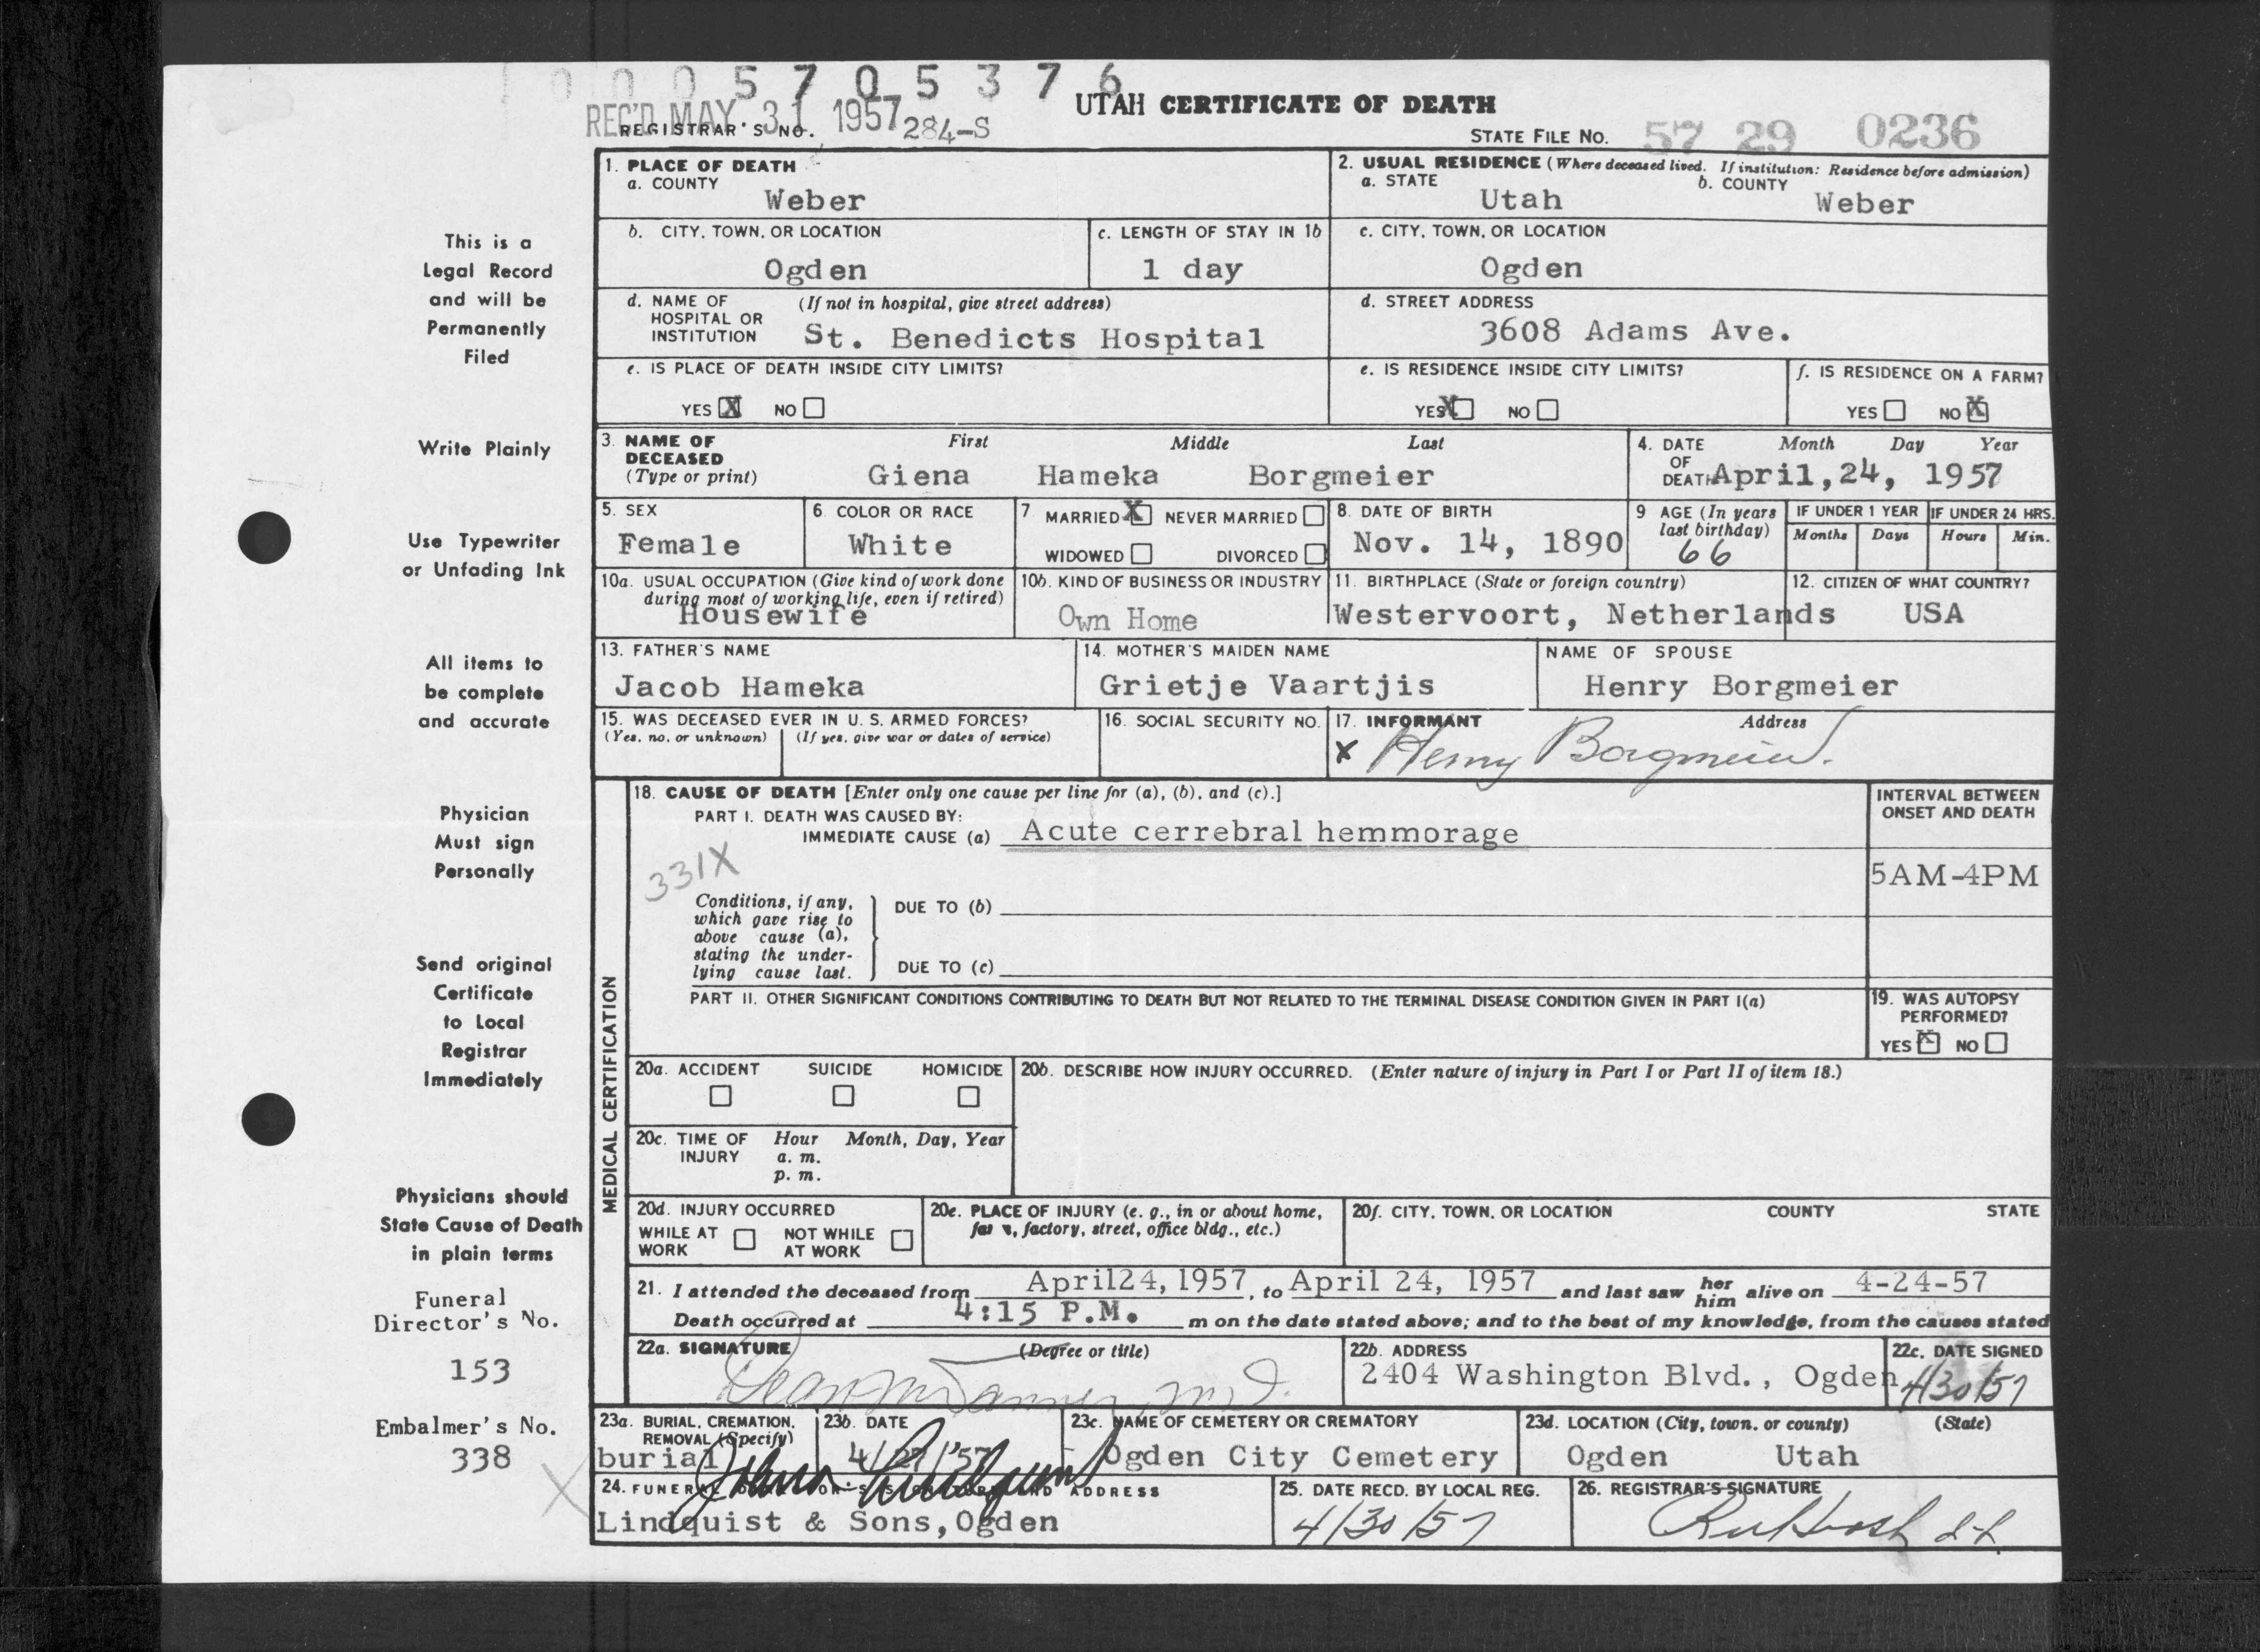 0 0 0 5 7 0 5 3 7 6
REC'D MAY 31 1957
UTAH CERTIFICATE OF DEATH
REGISTRAR'S NO. 284-S
STATE FILE NO. 57 29 0236
1. PLACE OF DEATH
a. COUNTY
Weber
2. USUAL RESIDENCE (Where deceased lived. If institution: Residence before admission)
a. STATE
Utah
b. COUNTY
Weber
b. CITY, TOWN, OR LOCATION
Ogden
c. LENGTH OF STAY IN 1b
1 day
c. CITY, TOWN, OR LOCATION
Ogden
d. NAME OF HOSPITAL OR INSTITUTION
(If not in hospital, give street address)
St. Benedicts Hospital
d. STREET ADDRESS
3608 Adams Ave.
e. IS PLACE OF DEATH INSIDE CITY LIMITS?
YES X NO
e. IS RESIDENCE INSIDE CITY LIMITS?
YES X NO
f. IS RESIDENCE ON A FARM?
YES NO X
3. NAME OF DECEASED
(Type or print)
First Middle Last
Giena Hameka Borgmeier
4. DATE OF DEATH
Month Day Year
April,24, 1957
5. SEX
Female
6. COLOR OR RACE
White
7. MARRIED X NEVER MARRIED
WIDOWED DIVORCED
8. DATE OF BIRTH
Nov. 14, 1890
9 AGE (In years last birthday)
66
IF UNDER 1 YEAR
Months Days
IF UNDER 24 HRS.
Hours Min.
10a. USUAL OCCUPATION (Give kind of work done during most of working life, even if retired)
Housewife
10b. KIND OF BUSINESS OR INDUSTRY
Own Home
11. BIRTHPLACE (State or foreign country)
Westervoort, Netherlands
12. CITIZEN OF WHAT COUNTRY?
USA
13. FATHER'S NAME
Jacob Hameka
14. MOTHER'S MAIDEN NAME
Grietje Vaartjis
NAME OF SPOUSE
Henry Borgmeier
15. WAS DECEASED EVER IN U. S. ARMED FORCES?
(Yes, no, or unknown) (If yes, give war or dates of service)
16. SOCIAL SECURITY NO.
17. INFORMANT Address
X Henry Borgmeier.
MEDICAL CERTIFICATION
18. CAUSE OF DEATH [Enter only one cause per line for (a), (b), and (c).]
PART I. DEATH WAS CAUSED BY:
IMMEDIATE CAUSE (a) Acute cerrebral hemmorage
331X
INTERVAL BETWEEN ONSET AND DEATH
5AM-4PM
Conditions, if any, which gave rise to above cause (a), stating the underlying cause last.
DUE TO (b)
DUE TO (c)
PART II. OTHER SIGNIFICANT CONDITIONS CONTRIBUTING TO DEATH BUT NOT RELATED TO THE TERMINAL DISEASE CONDITION GIVEN IN PART I(a)
19. WAS AUTOPSY PERFORMED?
YES X NO
20a. ACCIDENT SUICIDE HOMICIDE
20b. DESCRIBE HOW INJURY OCCURRED. (Enter nature of injury in Part I or Part II of item 18.)
20c. TIME OF INJURY
Hour Month, Day, Year
a. m.
p. m.
20d. INJURY OCCURRED
WHILE AT WORK NOT WHILE AT WORK
20e. PLACE OF INJURY (e. g., in or about home, farm, factory, street, office bldg., etc.)
20f. CITY, TOWN, OR LOCATION COUNTY STATE
21. I attended the deceased from April24, 1957, to April 24, 1957 and last saw her him alive on 4-24-57
Death occurred at 4:15 P.M. m on the date stated above; and to the best of my knowledge, from the causes stated
22a. SIGNATURE (Degree or title)
Tanner, M.D.
22b. ADDRESS
2404 Washington Blvd., Ogden
22c. DATE SIGNED
4/30/57
23a. BURIAL, CREMATION, REMOVAL (Specify)
burial
23b. DATE
4/27/'57
23c. NAME OF CEMETERY OR CREMATORY
Ogden City Cemetery
23d. LOCATION (City, town, or county) (State)
Ogden Utah
24. FUNERAL ADDRESS
Lindquist & Sons,Ogden
25. DATE RECD. BY LOCAL REG.
4/30/57
26. REGISTRAR'S SIGNATURE
This is a
Legal Record
and will be
Permanently
Filed
Write Plainly
Use Typewriter
or Unfading Ink
All items to
be complete
and accurate
Physician
Must sign
Personally
Send original
Certificate
to Local
Registrar
Immediately
Physicians should
State Cause of Death
in plain terms
Funeral
Director's No.
153
Embalmer's No.
338
X